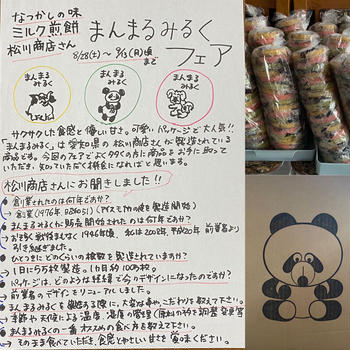 なつかしの味
ミルク煎餅
松川商店さん
まんまるみるく
フェア
8/28(土)～9/13(月)頃
まで
まんまる
みるく
まんまる
みるく
まんまる
みるく
サクサクした食感と優しい甘さ。可愛いパッケージで大人気!!
「まんまるみるく」は愛知県の松川商店さんが製造されている
商品です。今回のフェアでより多くの方に商品をお手に取って
いただき、知っていただく機会になればと思います。
松川商店さんにお聞きしました!!
創業されたのは何年ですか?
創業(1976年、昭和51)(アイスモナカの皮を製造開始)
まんまるみるくが販売開始されたのは何年ですか?
おそらく戦後まもなく1946年頃、私は2008年、平成20年 前業者より
引き継ぎました。
ひとつきにどのくらいの枚数を製造されていますか?
1日に5万枚製造。1カ月約100万枚。
パッケージは、どのような経緯で今のデザインになったのですか?
前業者のデザインをリニューアルしました。
まんまるみるくを製造する際に、大変な事や、こだわりを教えて下さい。
季節や天候による温度、湿度の管理(原料の粉を調整変更等
まんまるみるくの一番オススメの食べ方を教えて下さい。
そのまま食べていただき、食感とやさしい甘さを賞味ください。